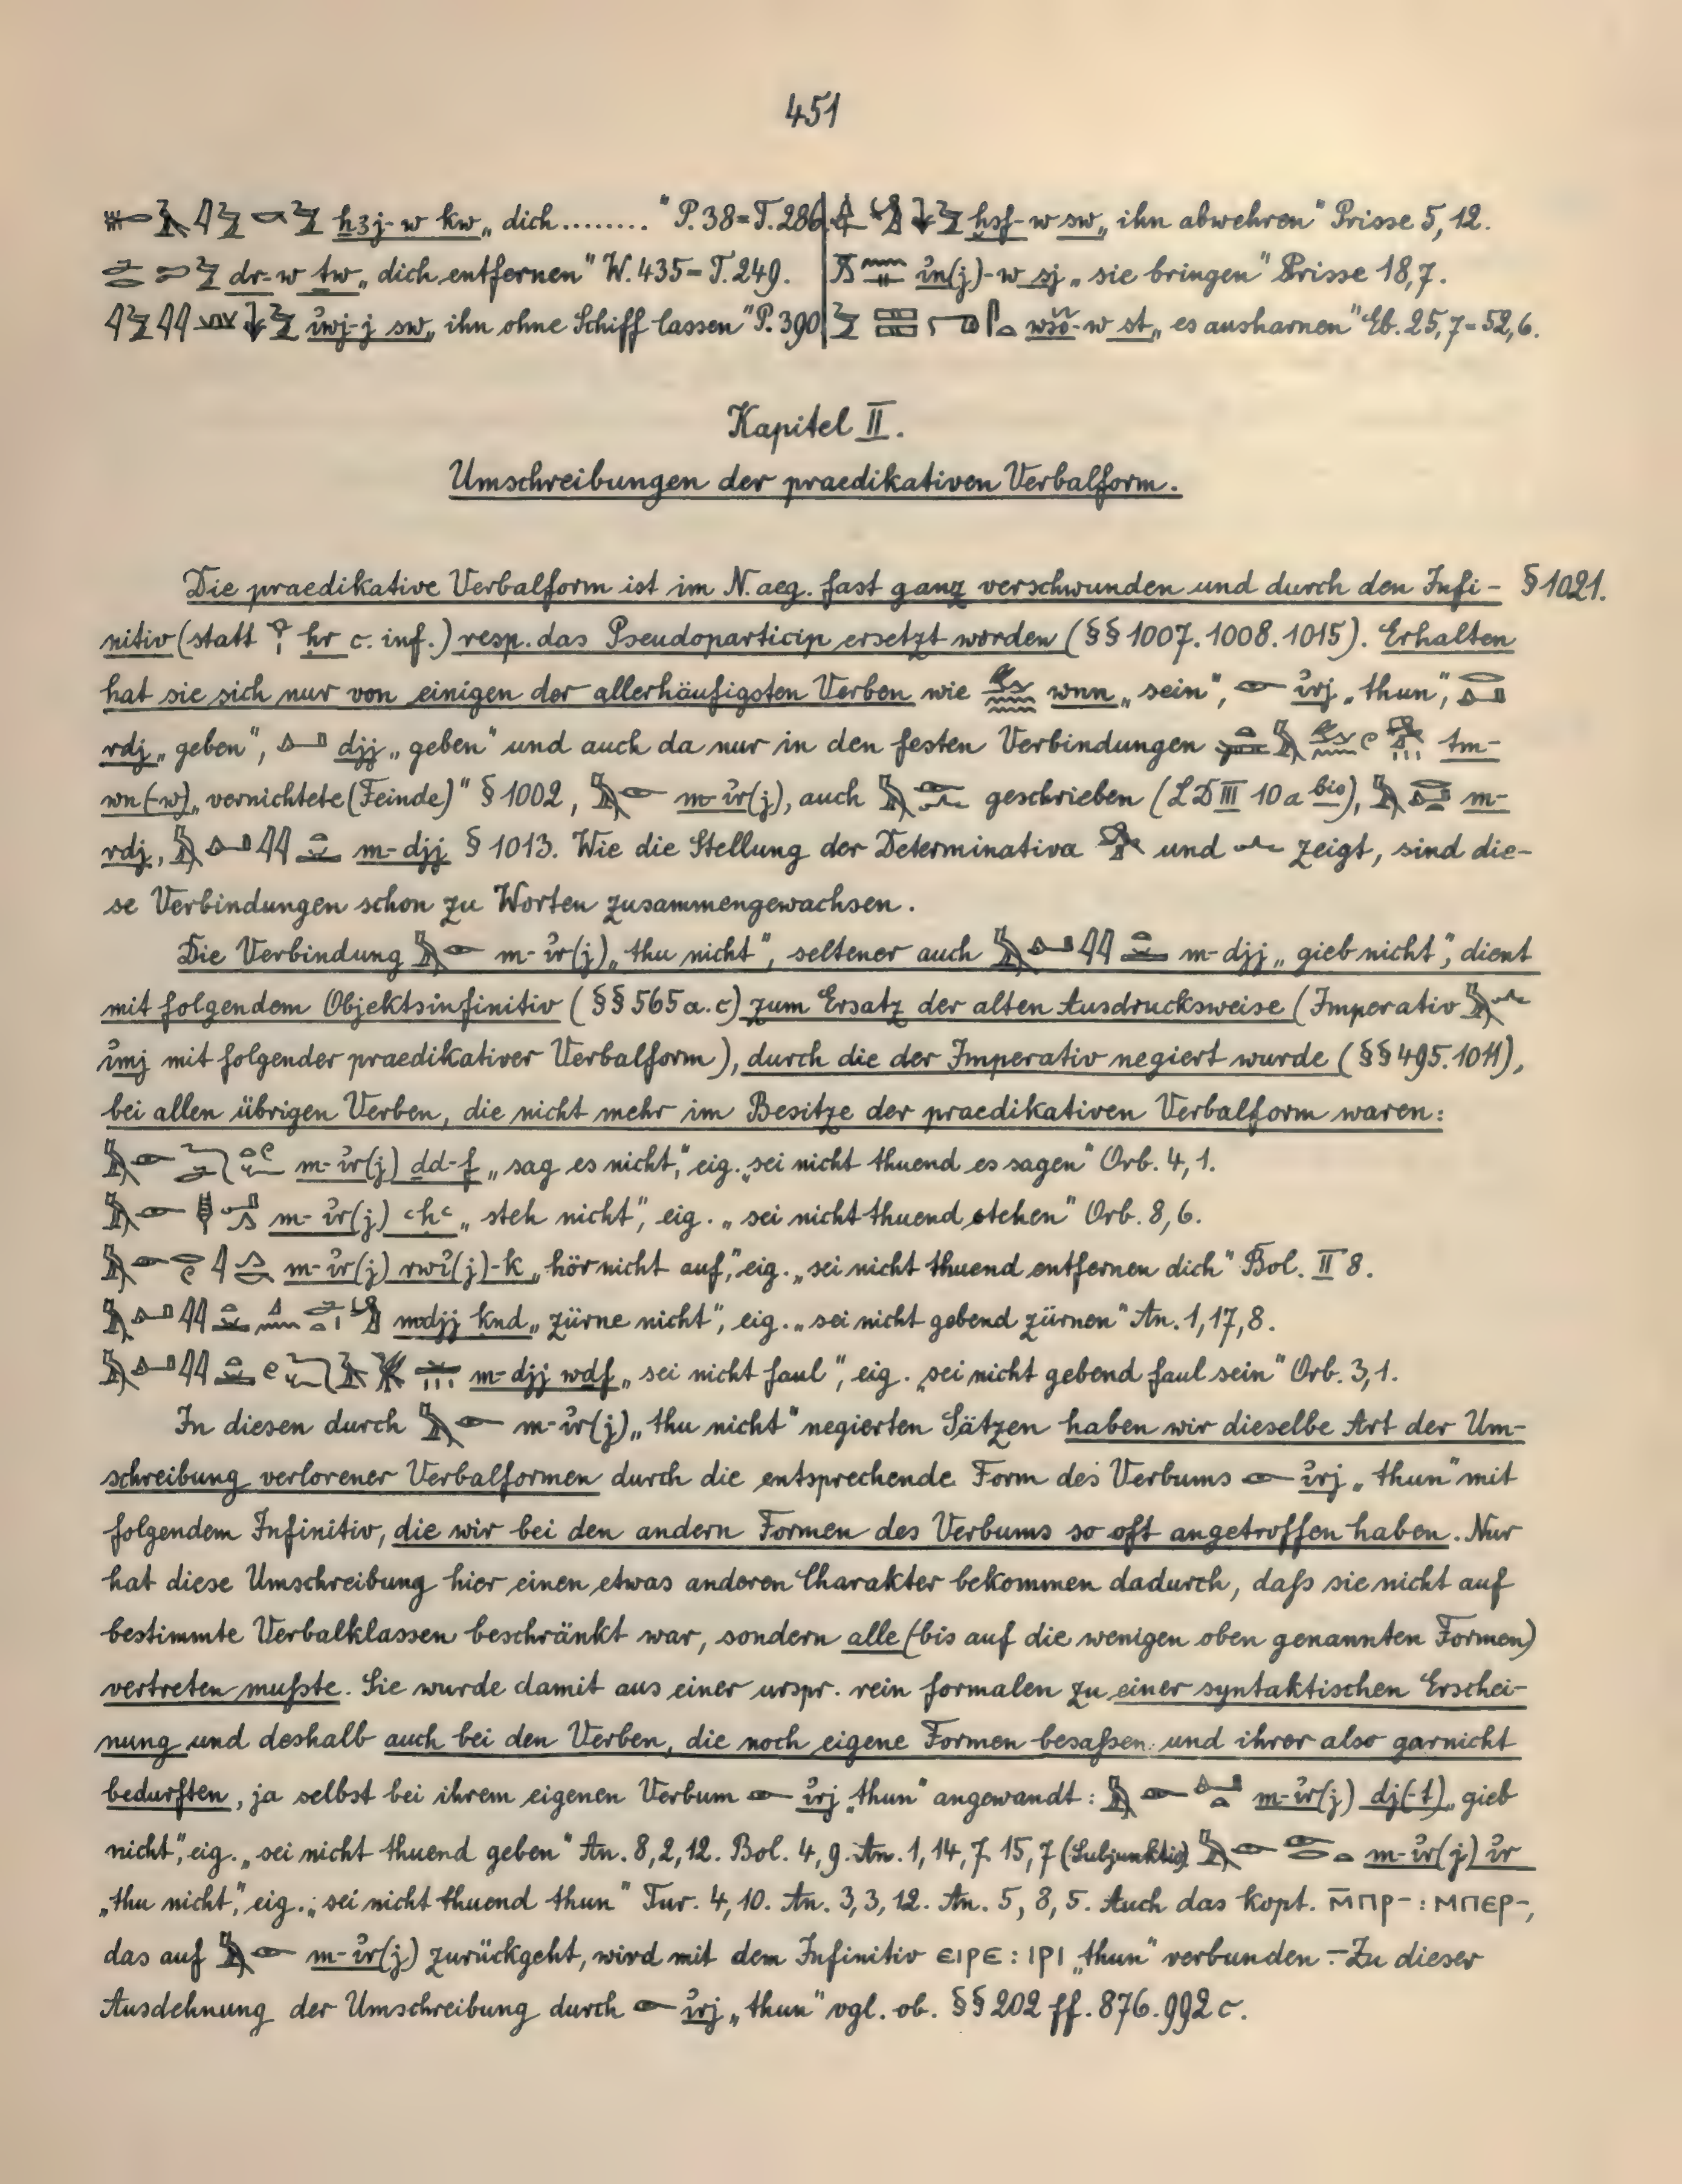 451
ẖꜣj-w kw „dich........" P. 38 = T. 286
dr-w tw „dich entfernen" W. 435 = T. 249.
ı͗wj-j sw „ihn ohne Schiff lassen" P. 390
ḫsf-w sw „ihn abwehren" Prisse 5, 12.
ı͗n(j)-w sj „sie bringen" Prisse 18,7.
st „es ausharnen" Eb. 25,7 = 52,6.
Kapitel II.
Umschreibungen der praedikativen Verbalform.
Die praedikative Verbalform ist im N. aeg. fast ganz verschwunden und durch den Infi- § 1021.
nitiv (statt ḥr c. inf.) resp. das Pseudoparticip ersetzt worden (§§ 1007. 1008. 1015). Erhalten
hat sie sich nur von einigen der allerhäufigsten Verben wie wnn „sein", ı͗rj „thun",
rdj „geben", djj „geben" und auch da nur in den festen Verbindungen tm-
wn(-w) „vernichtete (Feinde)" § 1002, m-ı͗r(j), auch geschrieben (LD III 10 a bis), m-
rdj, m-djj § 1013. Wie die Stellung der Determinativa und zeigt, sind die-
se Verbindungen schon zu Worten zusammengewachsen.
Die Verbindung m-ı͗r(j) „thu nicht", seltener auch m-djj „gieb nicht", dient
mit folgendem Objektsinfinitiv (§§ 565 a. c) zum Ersatz der alten Ausdrucksweise (Imperativ
ı͗mj mit folgender praedikativer Verbalform), durch die der Imperativ negiert wurde (§§ 495. 1011),
bei allen übrigen Verben, die nicht mehr im Besitze der praedikativen Verbalform waren:
m-ı͗r(j) ḏd-f „sag es nicht", eig. „sei nicht thuend es sagen" Orb. 4, 1.
m-ı͗r(j) ꜥḥꜥ „steh nicht", eig. „sei nicht thuend stehen" Orb. 8, 6.
m-ı͗r(j) rwı͗(j)-k „hör nicht auf", eig. „sei nicht thuend entfernen dich" Bol. II 8.
m-djj ḳnd „zürne nicht", eig. „sei nicht gebend zürnen" An. 1, 17, 8.
m-djj wdf „sei nicht faul", eig. „sei nicht gebend faul sein" Orb. 3, 1.
In diesen durch m-ı͗r(j) „thu nicht" negierten Sätzen haben wir dieselbe Art der Um-
schreibung verlorener Verbalformen durch die entsprechende Form des Verbums ı͗rj „thun" mit
folgendem Infinitiv, die wir bei den andern Formen des Verbums so oft angetroffen haben. Nur
hat diese Umschreibung hier einen etwas anderen Charakter bekommen dadurch, daß sie nicht auf
bestimmte Verbalklassen beschränkt war, sondern alle (bis auf die wenigen oben genannten Formen)
vertreten mußte. Sie wurde damit aus einer urspr. rein formalen zu einer syntaktischen Erschei-
nung und deshalb auch bei den Verben, die noch eigene Formen besaßen und ihrer also garnicht
bedurften, ja selbst bei ihrem eigenen Verbum ı͗rj „thun" angewandt: m-ı͗r(j) dj(-t) „gieb
nicht", eig. „sei nicht thuend geben" An. 8, 2, 12. Bol. 4, 9. An. 1, 14, 7. 15, 7 (Subjunktiv) m-ı͗r(j) ı͗r
„thu nicht", eig. „sei nicht thuend thun" Tur. 4, 10. An. 3, 3, 12. An. 5, 8, 5. Auch das kopt. ⲙ̄ⲡⲣ- : ⲙⲡⲉⲣ-,
das auf m-ı͗r(j) zurückgeht, wird mit dem Infinitiv ⲉⲓⲣⲉ : ⲓⲣⲓ „thun" verbunden. – Zu dieser
Ausdehnung der Umschreibung durch ı͗rj „thun" vgl. ob. §§ 202 ff. 876. 992 c.